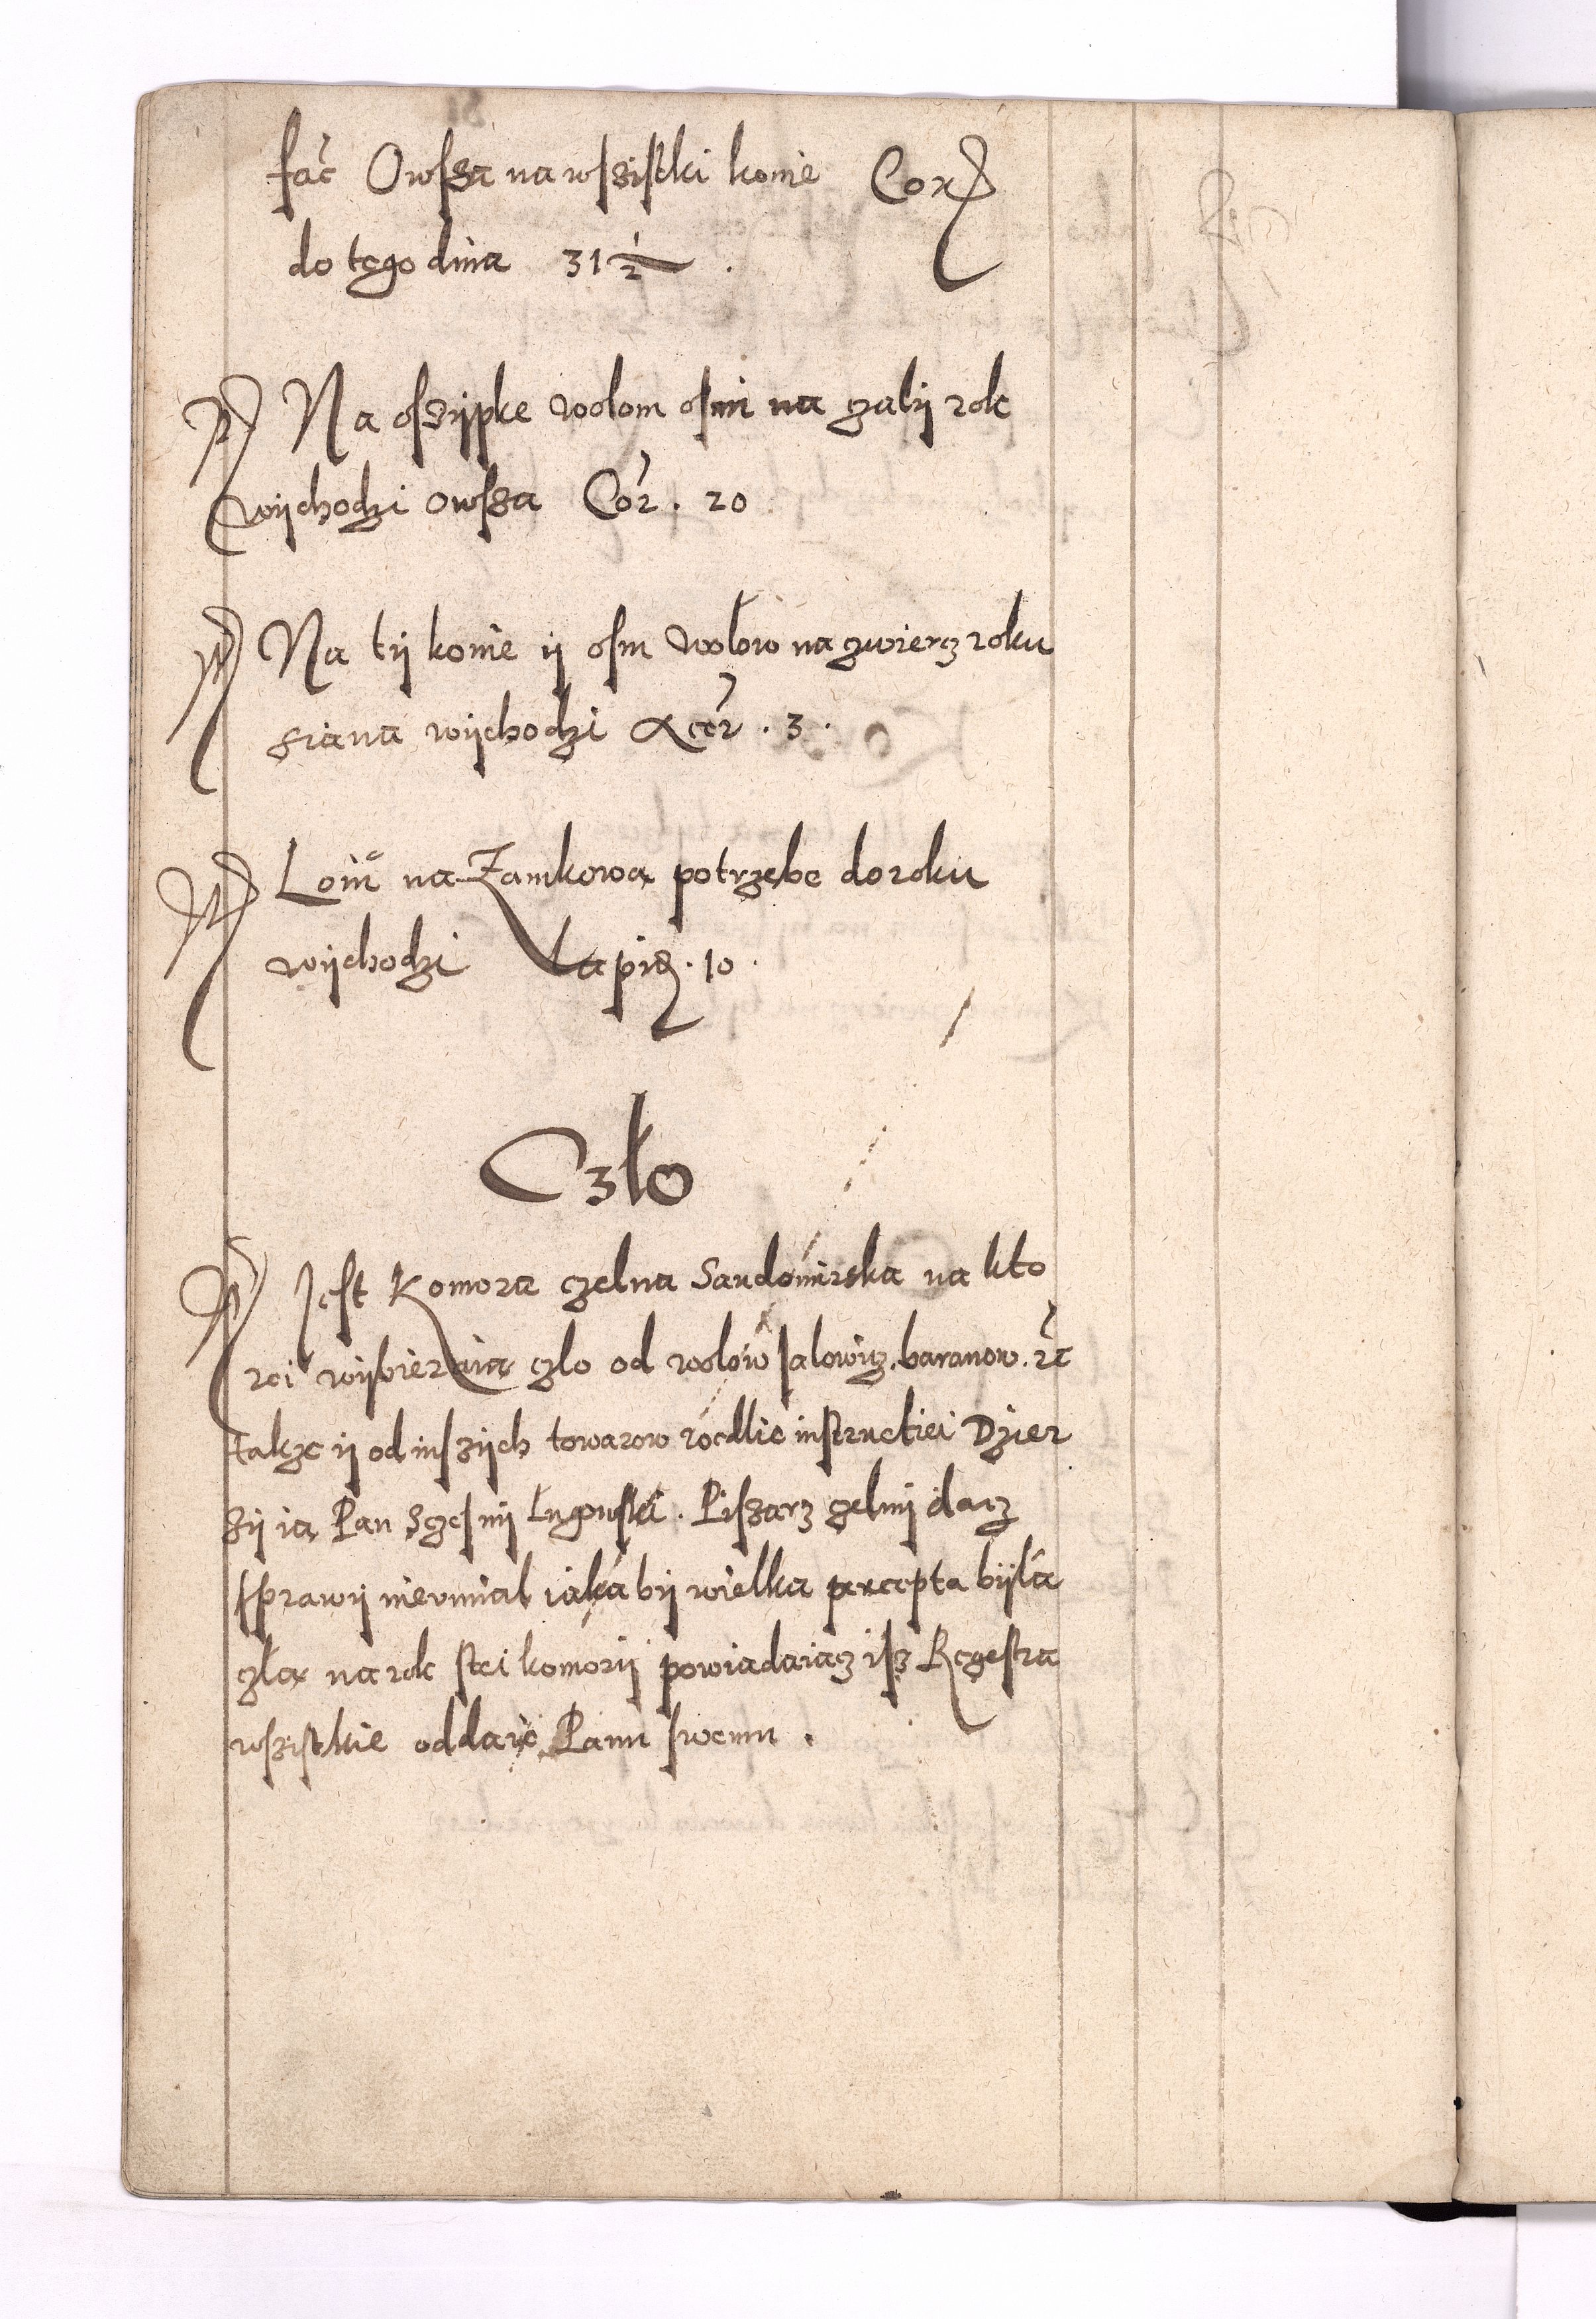 fać Owſsa na wſsistki konie Cor
do tego dnia 31 1/2 .
Na oſsijpke wolom oſmi na załij rok
wijchodzi owſsa Cor . 20
Na tij konie ij oſm wołow na zwierz roku
siana wijchodzi cor . 3 .
Loiu na Zamkowa potrzebe do roku
wijchodzi Lapid . 10 .
Czło
Jeſt Komora czelna Sandomirska na kto
rei wijbieraia czlo od wolow Jalowicz . baranow . etc
takze ij od inſzijch towarow wedlie inſtructiei Dzier
zij ia Pan Sczeſnij Ługowſki . Piſsarz czelnij dacz
ſprawij nieumial iaka bij wielka percepta bijla
cła na rok ſtei komorij powiadaiacz iſz Regeſtra
wſzistkie oddaie Panu ſwemu .